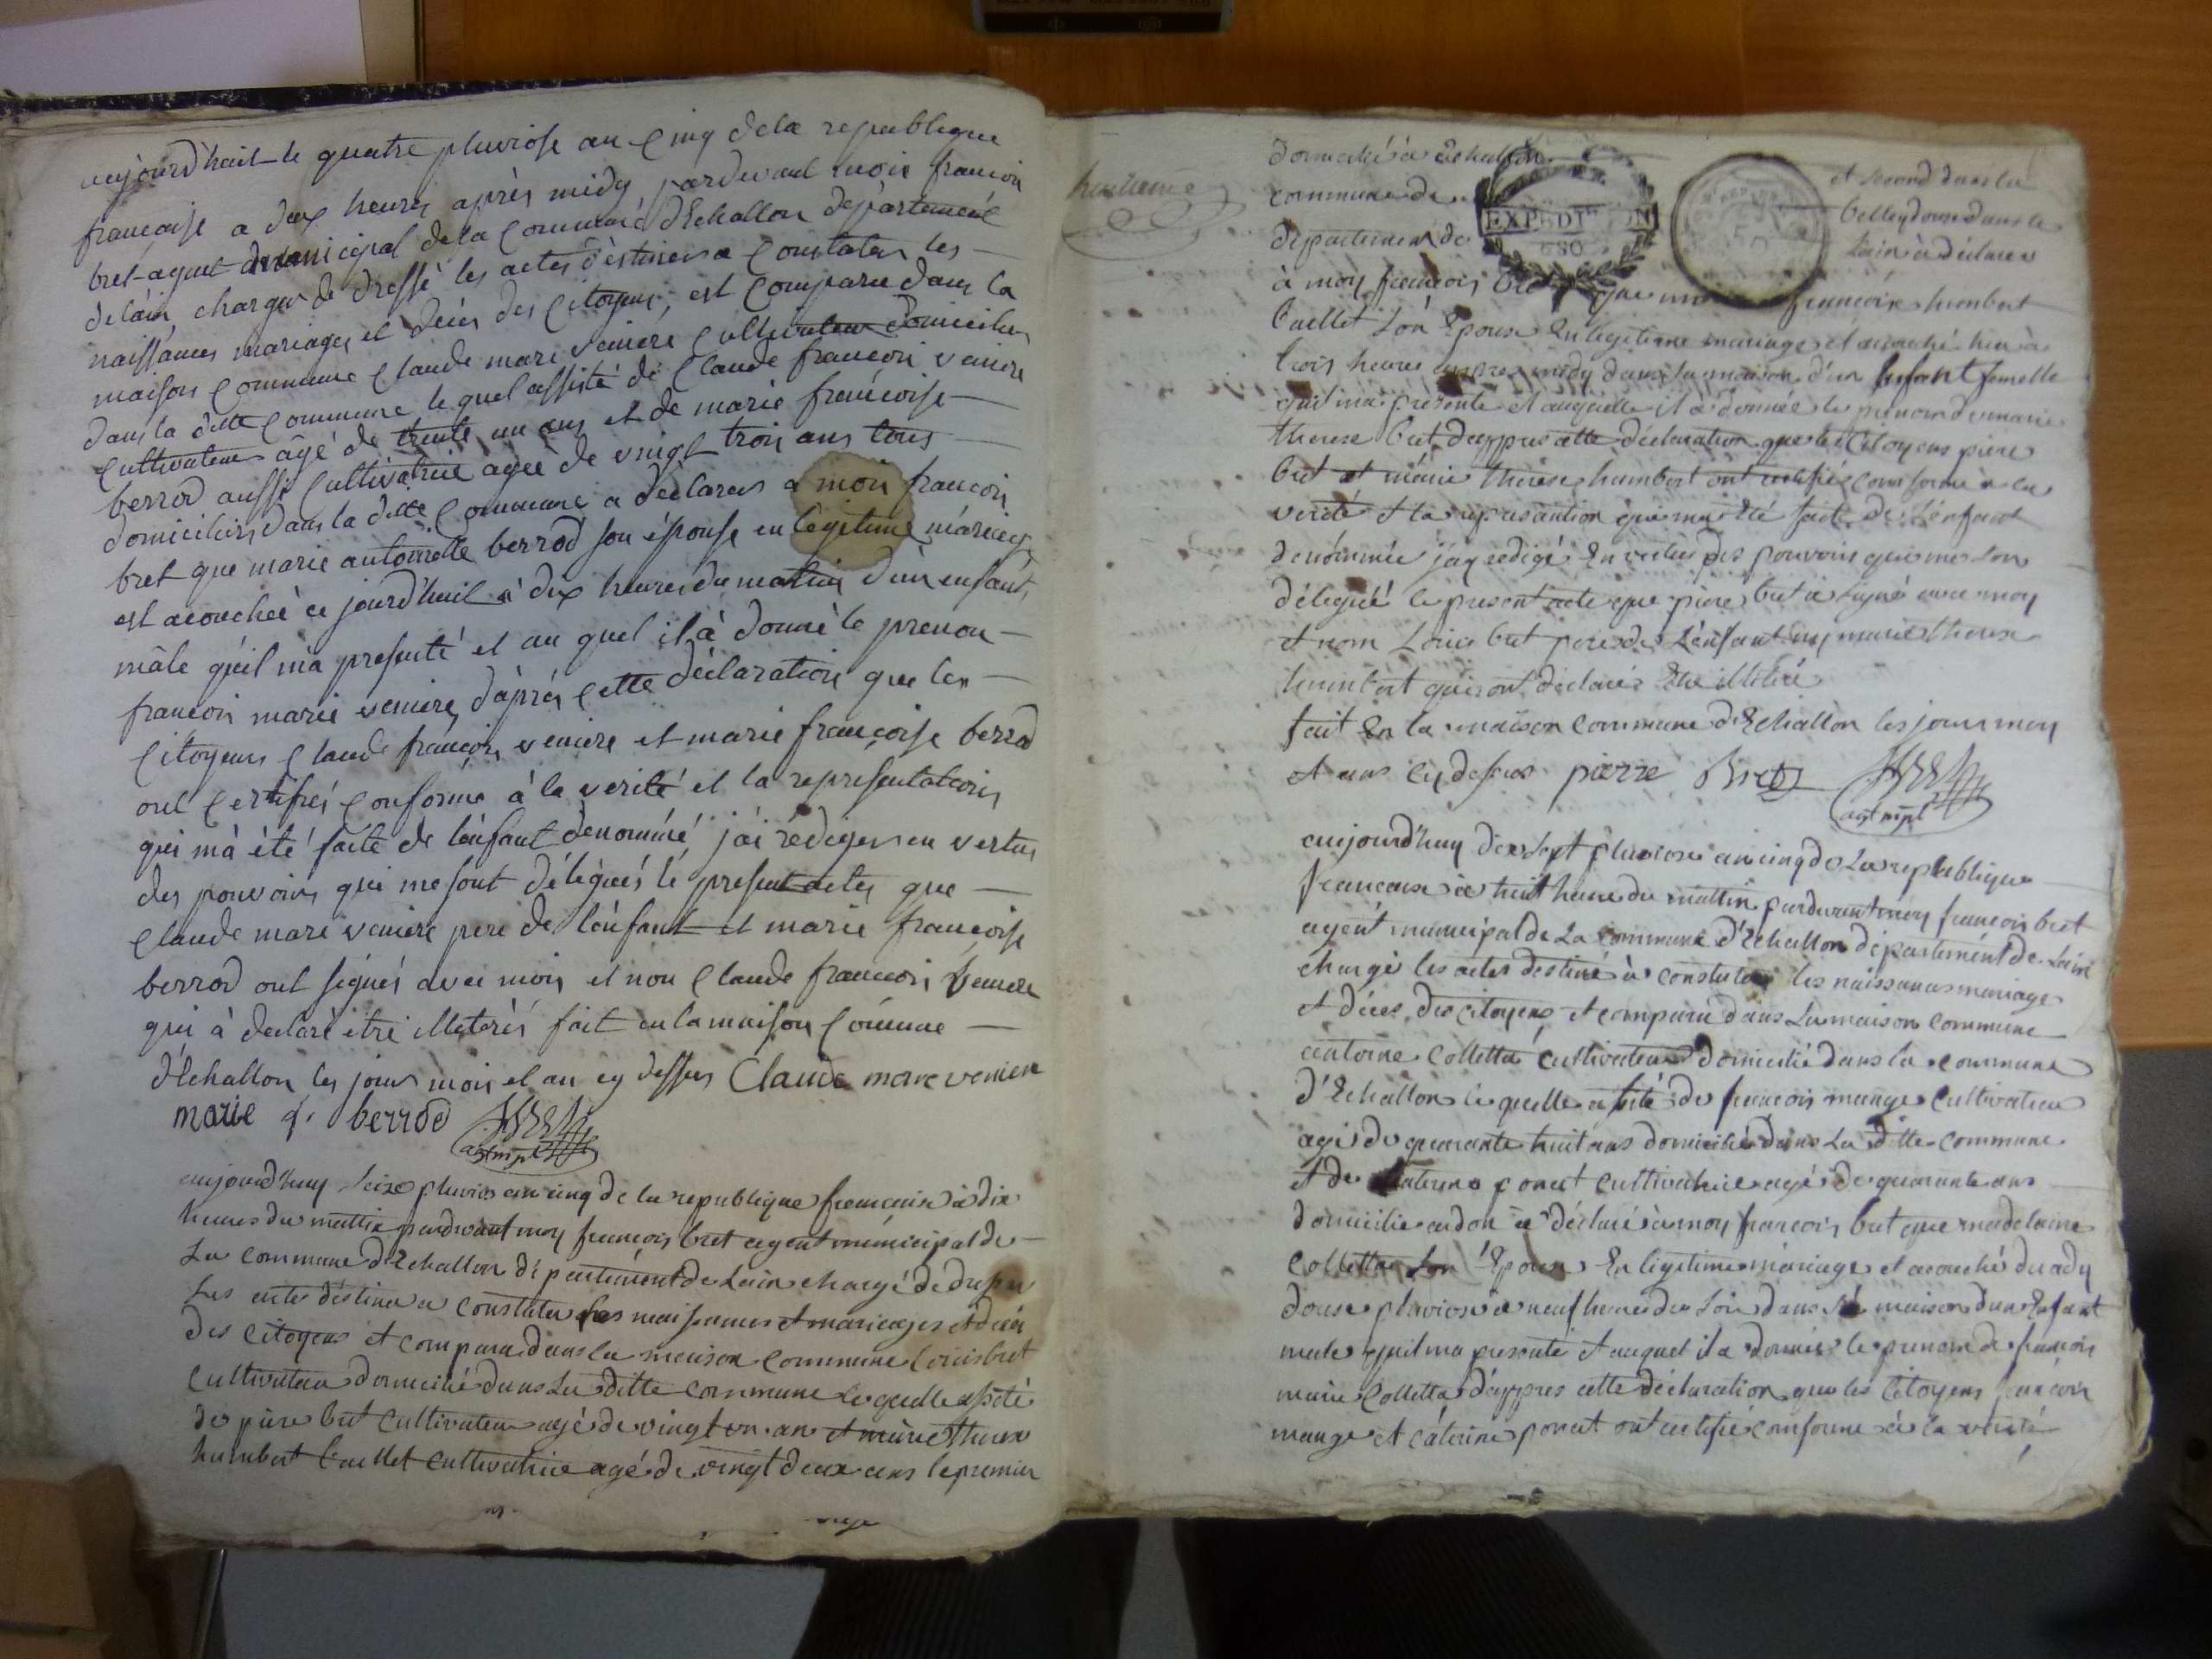 aujourd'huit le quatre pluviose an cinq dela republique
francaise a deux heures après midy pardevant moi francois
bret agent municipal dela commune dEchallon département
delain charger de dressé les actes déstiner a constater les
naissances mariages et décés des citoyens, est comparu dans la
maison commune claude marie veniere cultivateur domicilier
dans la ditte commune le quel assisté de claude francois veniere
cultivateur âgé de trente un ans et de marie françoise
berrod aussi cultivatrice agée de vingt trois ans tous
domiciliers dans la ditte commune a déclarer a moi francois
bret que marie antoinette berrod son épouse en légitime mariage
est acouchée ce jourd'huit à deux heures du matin d'un enfant
mâle qu'il m'a presenté et au quel il à donné le prenon
francois marie veniere, d'après cette déclaration que les
citoyens claude françois veniere et marie françoise berrod
ont certifiés conforme à la verité et la representation
qui m'à été faite de l'enfant dénommé, j'ai rédiger en vertus
des pouvoirs qui me sont délégués le present actes que
claude marie veniere pere de l'enfant et marie françoise
berrod ont signés avec moi et non claude francois veniere
qui à declaré être illeterés fait en la maison commune
d'Echallon les jours mois et an cy dessus Claude marie veniere
marie f. berrod
agt mpl
aujourd'huy seize pluvios an cinq de la republique francaise à dix
heures du mattin pardevant moy francois bret agent municipal de
La commune d'Echallon département de Lain chargé de dresser
Les actes déstiner a constater les naissances et mariages et décés
des citoyens et comparu dans la maison commune Louis bret
cultivateur domicilié dans La ditte commune lequelle assité
de piere bret cultivateur agé de vingt un an et marie therese
humbert buellet cultivatrice agé de vingt deux ans le premier
domicilié à Echallon et second dans la
commune de belleydoux dans le
departement de Lain à déclarer
à moy francois bret que françoise humbert
buellet son Epouse En legitime mariage et acouché hier à
trois heures apres midy dans sa maison d'un Enfant femelle
quil ma presenté et auquelle il a donnée le prenom de marie
therese bret dappres cette déclaration que les Citoyens piere
bret et marie therese humbert ont certifié conforme a la
verité et la representation qui ma été faite de Lenfant
denommée jay redigé En vertus des pouvoirs qui me son
délégué le present acte que piere bret a signé avec moy
et nom Louis bret pere de Lénfant ny marie therese
humbert qui ont déclarés Etre illitéré
fait En la maison commune d'Echallon les jours moy
et ans cy dessus pierre Bret
agt mpl
aujourd'huy dixsept pluviose an cinq de La republique
francaise à huit heure du mattin pardevant moy francois bret
agent municipal de La commune d'Echallon département de Lain
chargé les actes destiné à constater les naissances mariage
et décés des citoyens et comparu dans La maison commune
antoine Colletta cultivateur domicilié dans la commune
d'Echallon lequelle assité de francois mange cultivateur
agé de quarante huit ans domicilié dans La ditte commune
et de Caterine poncet cultivatrice agé de quarante ans
domicilié audon à déclaré à moy francois bret que madelaine
Colletta son Epouse En ligitime mariage et acouché du ady
douse pluviose à neuf heure du Soir dans sa maison d'un Enfant
male quil ma presenté et auquel il a donnée le prenom de francois
marie Colletta dappres cette déclaration que les Citoyens francois
mange et Caterine poncet ont certifié conforme à la verité